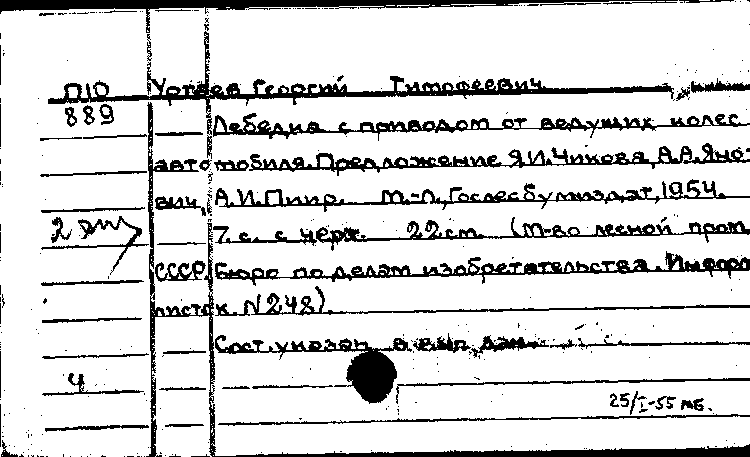 П10 Уртаев, Георгий Тимофеевич
889
Лебедка с приводом от ведущих колес
автомобиля. Предложение Я.И. Чикова, А.А. Яно-
вич, А.И. Пиир. М.-Л., Гослесбумиздат, 1954.
2 экз 7. с. с черт. 22 см. (М-во лесной пром
СССР. Бюро по делам изобретательства. Информ
листок N 248).
Сост. указан в вып. дан.
4
25/I-55 мб.